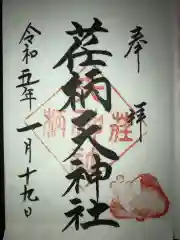 奉拝
荏柄天神社
令和五年
一月十九日